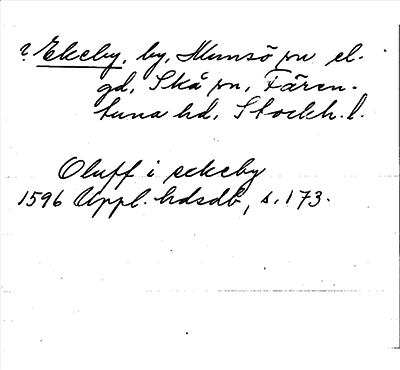 ? Ekeby, by, Munsö sn el.
gd, Skå sn, Fären-
tuna hd, Stockh. l.
Oluff i eekeby
1596 Uppl. hdsdb, s. 173.